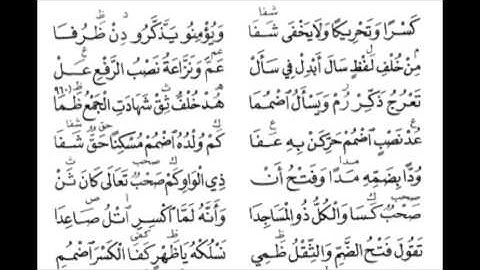 كَسْرًا وَتَحْرِيكًا وَلَا يَخْفَى شَفَا وَيُؤْمِنُو يَذَّكَّرُو دِنْ ظَرُفَا
مِنْ خُلْفِ لَفْظٍ سَالَ أَبْدِلْ فِي سَأَلْ عَمَّ وَنَزَّاعَةَ نَصْبُ الرَّفْعِ عَلْ
تَعْرُجُ ذَكِّرْ رُمْ وَيَسْأَلُ اضْمُمَا هُدْ خُلْفُ ثِقْ شَهَادَتِ الْجَمْعُ ظَمَا
عُدْ نَصْبٍ اضْمُمْ حَرِّكَنْ بِهِ عَفَا كَمْ وُلْدُهُ اضْمُمْ مُسْكِنًا حَقٌّ شَفَا
وُدًّا بِضَمِّهِ مَدًا وَفَتْحُ أَنْ ذِي الْوَاوِ كَمْ صَحْبٌ تَعَالَى كَانَ ثَنْ
صَحْبٌ كَسَا وَالْكُلُّ ذُو الْمَسَاجِدَا وَأَنَّهُ لَمَّا اكْسِرِ اتْلُ صَاعِدَا
تَقُولَ فَتْحُ الضَّمِّ وَالثِّقْلُ ظَمِي نَسْلُكْهُ يَا ظَهْرٍ كَفَا الْكَسْرَ اضْمُمِ